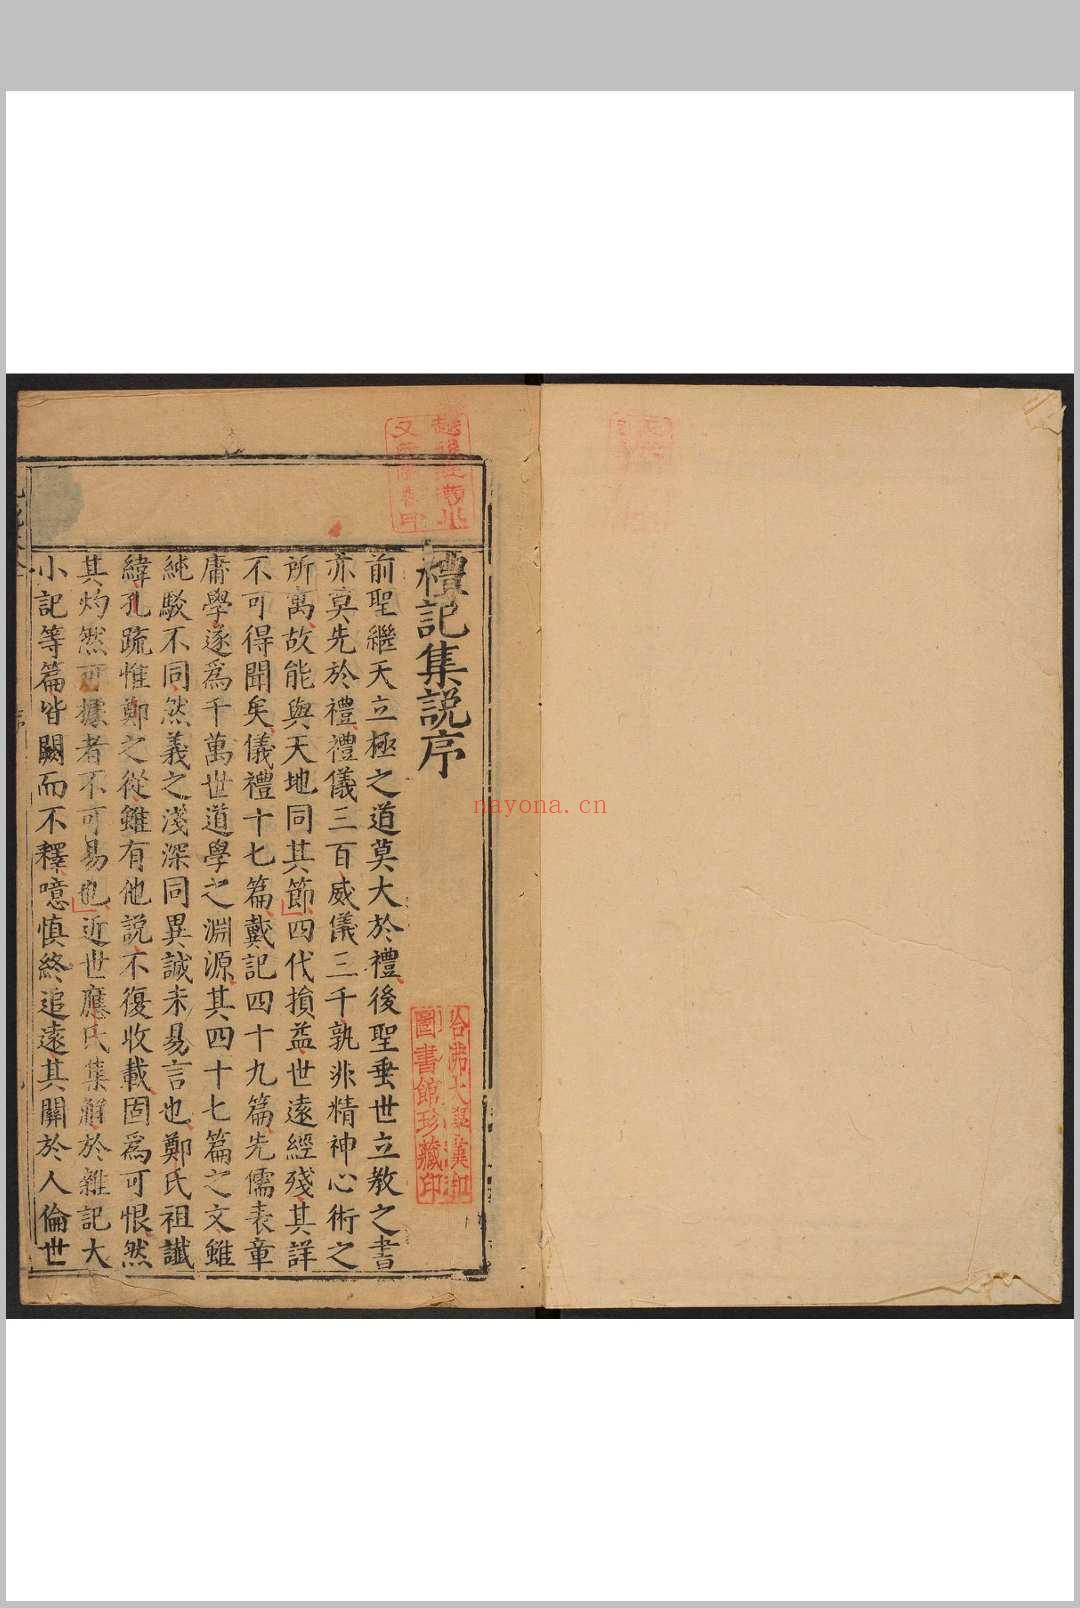 禮記集說序
前聖繼天立極之道莫大於禮後聖垂世立敎之書
亦莫先於禮禮儀三百威儀三千孰非精神心術之
所寓故能與天地同其節四代損益世遠經殘其詳
不可得聞矣儀禮十七篇戴記四十九篇先儒表章
庸學遂爲千萬世道學之淵源其四十七篇之文雖
純駁不同然義之淺深同異誠未易言也鄭氏祖讖
緯孔疏惟鄭之從雖有他說不復收載固爲可恨然
其灼然可據者不可易也近世應氏集解於雜記大
小記等篇皆闕而不釋噫慎終追遠其關於人倫世
哈佛大學漢和
圖書館珍藏印
nayona.cn